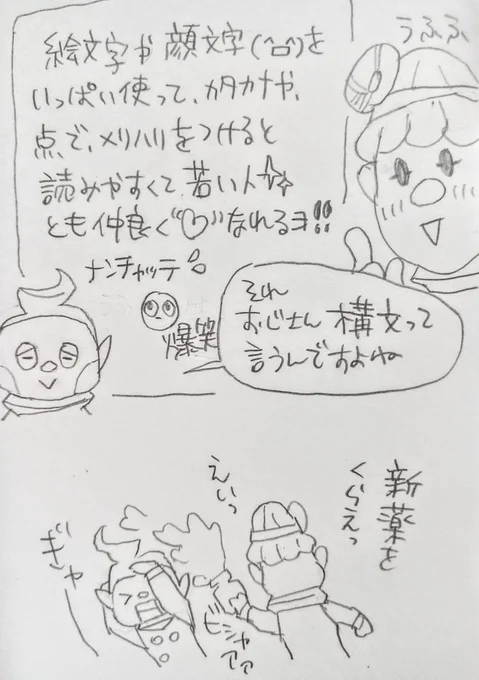 うふふ、
絵文字や顔文字(^o^)を
いっぱい使って、カタカナや、
点、で、メリハリをつけると
読みやすくて、若い人☆☆
とも仲良く"♡"なれるヨ!!
ナンチャッテ
爆笑
それ
おじさん構文って
言うんですよね
新薬を
くらえっ
えいっ
ビシャアァ
ギャ